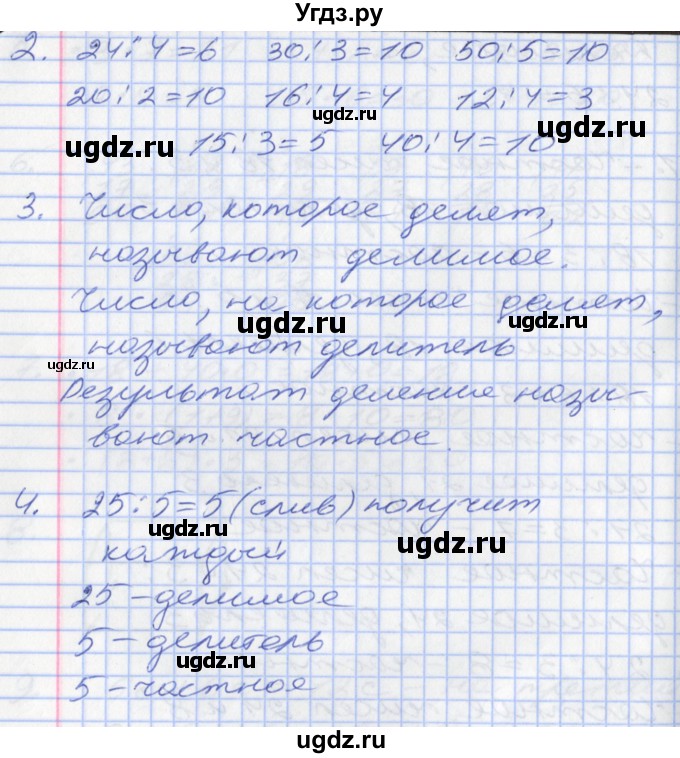 Угдз.ру
2. 24:4=6 30:3=10 50:5=10
20:2=10 16:4=4 12:4=3
ugdz.ru
ugdz.ru
15:3=5 40:4=10
3. Число, которое делят,
называют делимое.
Число, на которое делят,
ugdz.ru
ugdz.ru
называют делитель
ugdz.ru
Результат деления назы-
вают частное.
4. 25:5=5 (слив) получит
ugdz.ru
каждый
ugdz.ru
25 – делимое
5 – делитель
ugdz.ru
5 – частное
ugdz.ru